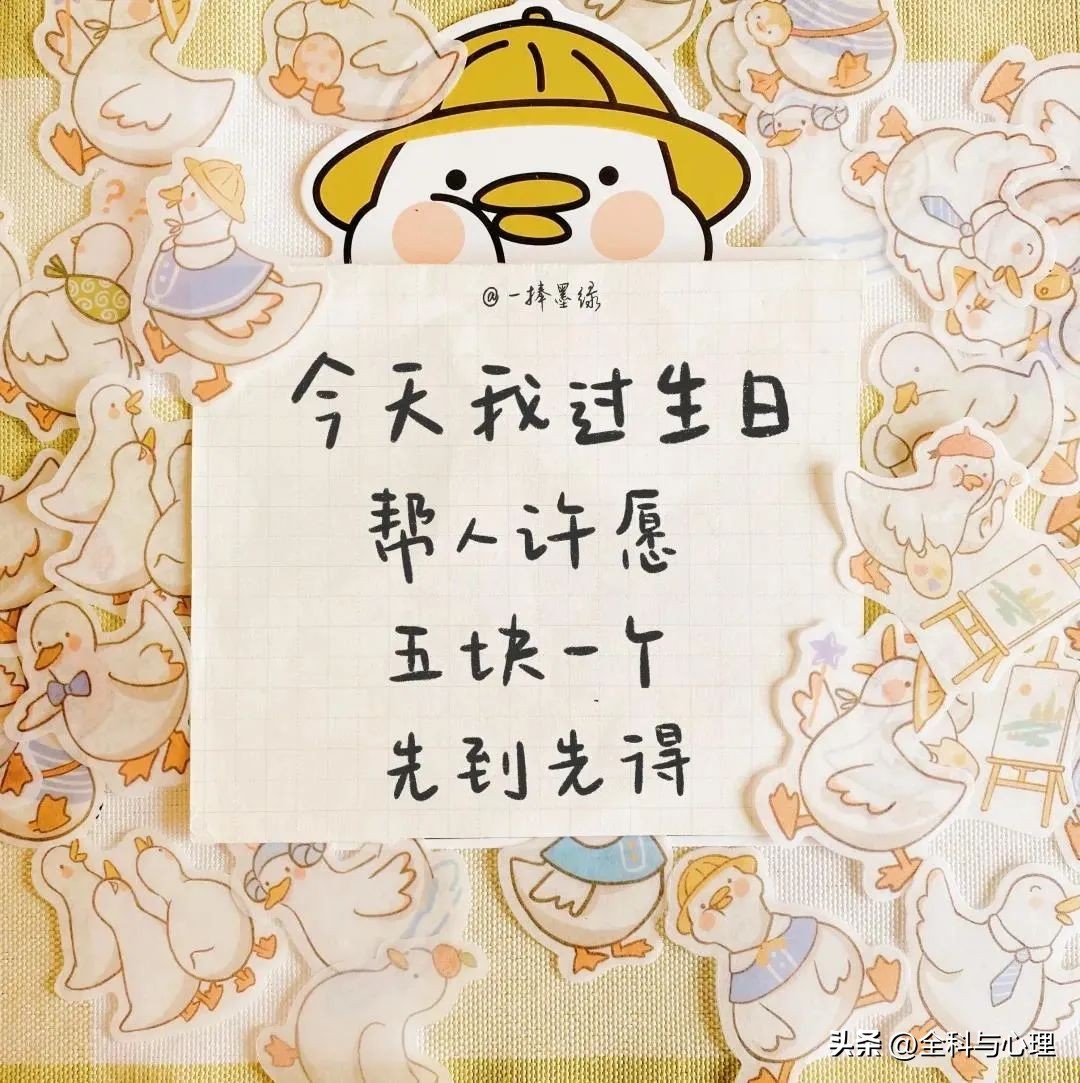 @一捧墨绿
今天我过生日
帮人许愿
五块一个
先到先得
头条 @全科与心理